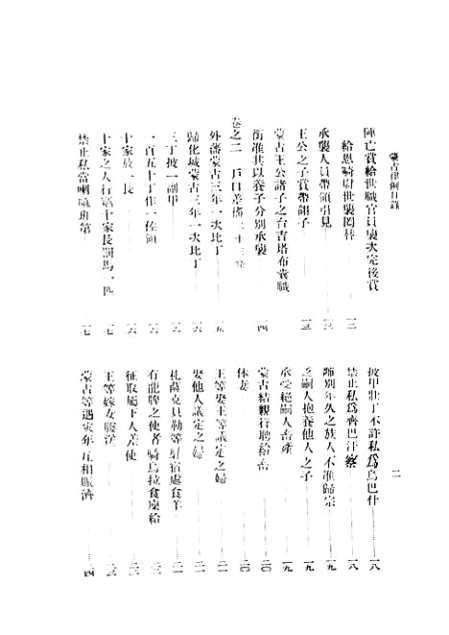 蒙古律例目錄
陣亡賞給世職官員襲次完後賞
給恩騎尉世襲罔替 一三
承襲人員帶領引見
王公之子賞帶翎子
蒙古王公諸子之台吉塔布囊職
銜准其以養子分別承襲 一四
卷之二 戶口差徭二十三條
外藩蒙古三年一次比丁
歸化城蒙古三年一次比丁
三丁披一副甲 一六
一百五十丁作一佐領 一六
十家放一長 一六
十家之人行竊十家長罰馬一匹 一七
禁止私當喇嘛班第 一七
二
披甲壯丁不許私為烏巴什 一八
禁止私為齊巴汗察 一八
離別年久之族人不准歸宗 一九
乏嗣人抱養他人之子 一九
承受絕嗣人畜產 一九
蒙古結親行聘給畜 二〇
休妻 二〇
王等娶王等議定之婦 二一
娶他人議定之婦 二一
札薩克貝勒等駐宿處食羊 二一
有龍牌之使者騎烏拉食廩給
征取屬下人差使
王等嫁女賸淫
蒙古等遇災年互相賑濟 二四